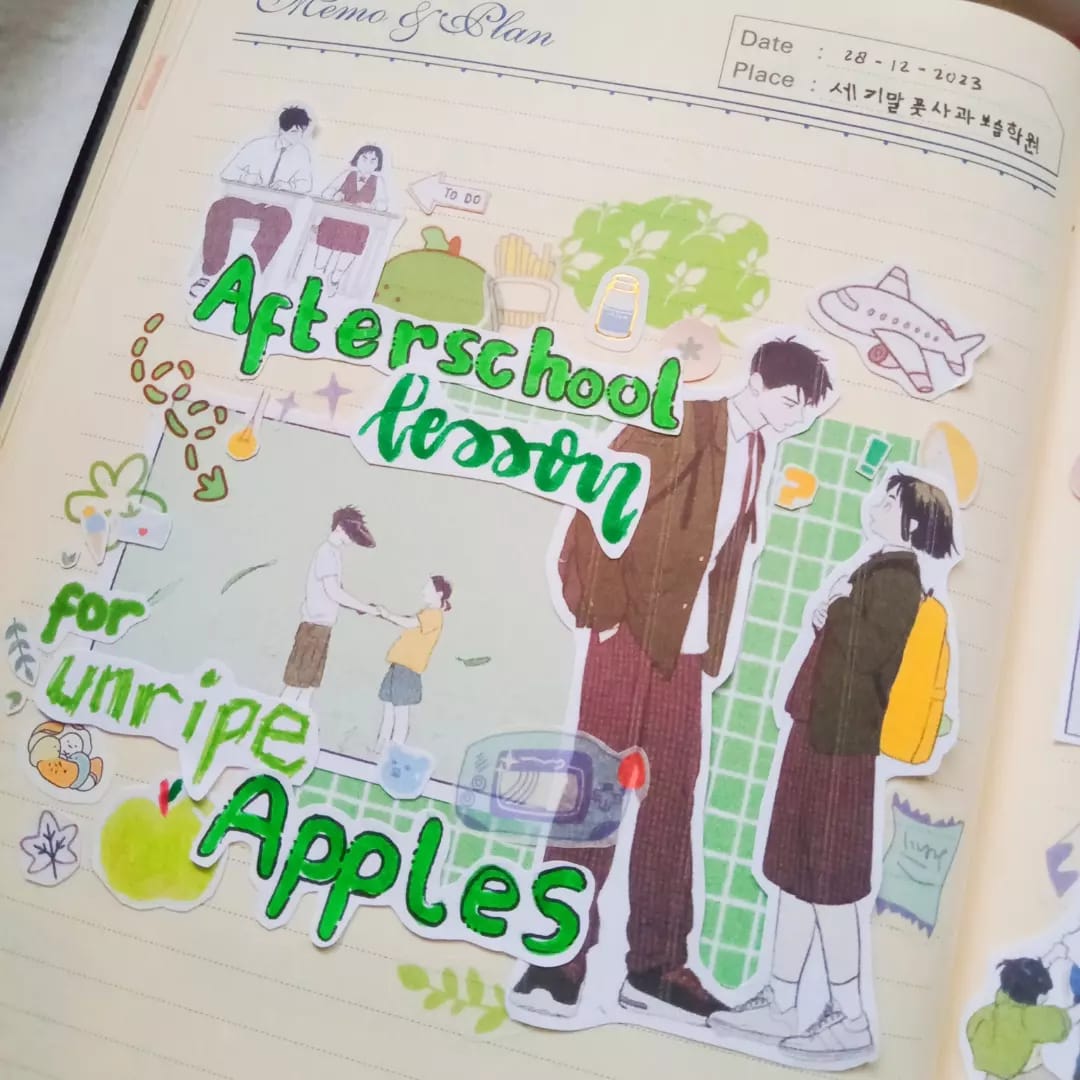 Memo & Plan
Date : 28-12-2023
Place : 세기말 풋사과 보습학원
TO DO
Afterschool
lesson
?
!
for
unripe
Apples